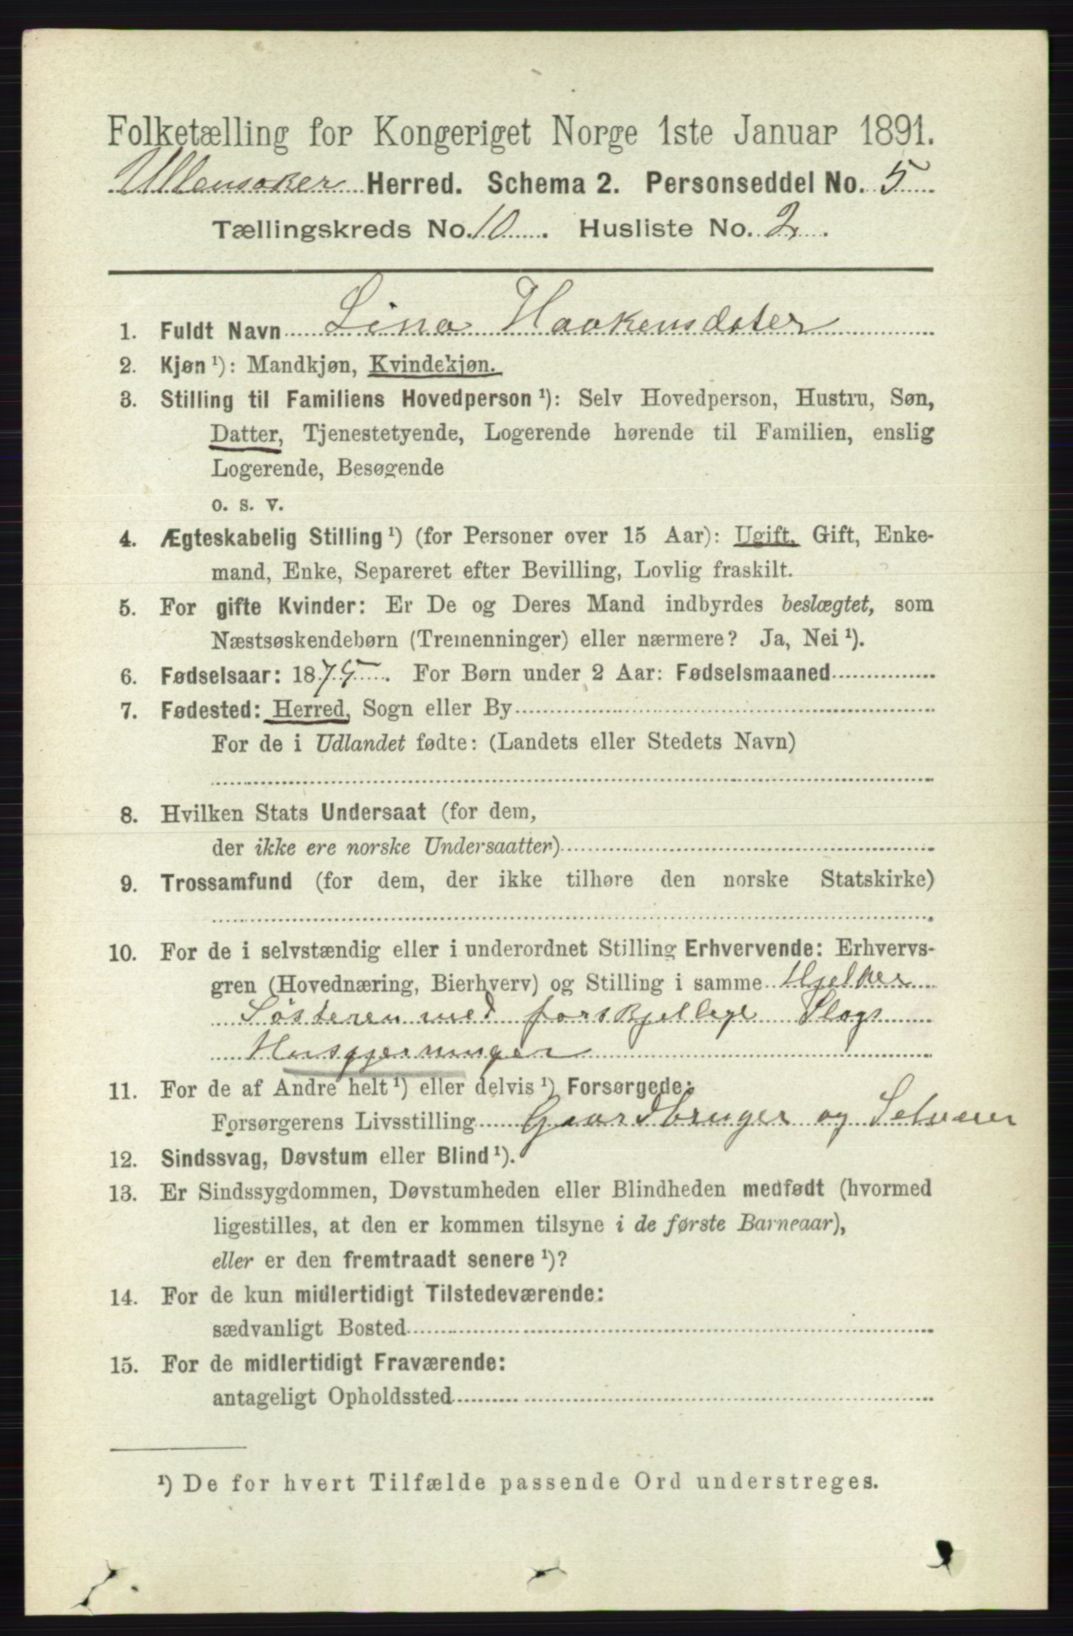 Folketælling for Kongeriget Norge 1ste Januar 1891.
Ullensaker Herred. Schema 2. Personseddel No. 5
Tællingskreds No. 10. Husliste No. 2.
1. Fuldt Navn Lina Haakensdater
2. Kjøn ¹): Mandkjøn, Kvindekjøn.
3. Stilling til Familiens Hovedperson ¹): Selv Hovedperson, Hustru, Søn,
Datter, Tjenestetyende, Logerende hørende til Familien, enslig
Logerende, Besøgende
o. s. v.
4. Ægteskabelig Stilling ¹) (for Personer over 15 Aar): Ugift, Gift, Enke-
mand, Enke, Separeret efter Bevilling, Lovlig fraskilt.
5. For gifte Kvinder: Er De og Deres Mand indbyrdes beslægtet, som
Næstsøskendebørn (Tremenninger) eller nærmere? Ja, Nei ¹).
6. Fødselsaar: 1875. For Børn under 2 Aar: Fødselsmaaned
7. Fødested: Herred, Sogn eller By
For de i Udlandet fødte: (Landets eller Stedets Navn)
8. Hvilken Stats Undersaat (for dem,
der ikke ere norske Undersaatter)
9. Trossamfund (for dem, der ikke tilhøre den norske Statskirke)
10. For de i selvstændig eller i underordnet Stilling Erhvervende: Erhvervs-
gren (Hovednæring, Bierhverv) og Stilling i samme Hjelper
Søsteren med forskjellige Slags
Husgjerninger
11. For de af Andre helt ¹) eller delvis ¹) Forsørgede:
Forsørgerens Livsstilling Gaardbruger og Selveier
12. Sindssvag, Døvstum eller Blind ¹).
13. Er Sindssygdommen, Døvstumheden eller Blindheden medfødt (hvormed
ligestilles, at den er kommen tilsyne i de første Barneaar),
eller er den fremtraadt senere ¹)?
14. For de kun midlertidigt Tilstedeværende:
sædvanligt Bosted
15. For de midlertidigt Fraværende:
antageligt Opholdssted
¹) De for hvert Tilfælde passende Ord understreges.